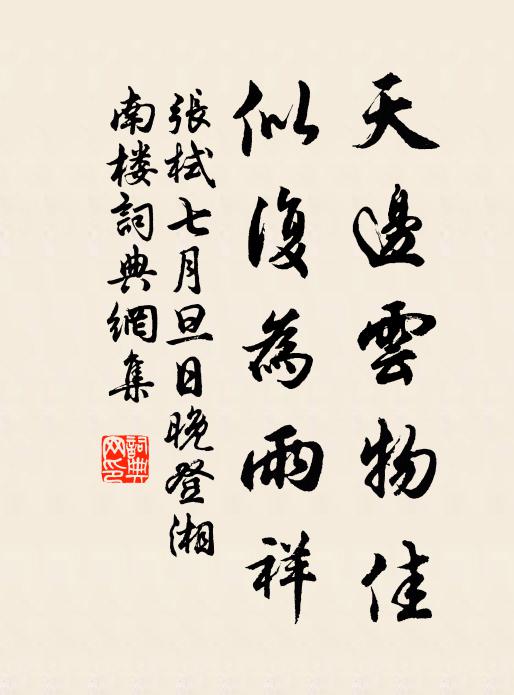 天邊雲物佳
似復為雨祥
張栻七月旦日晚登湘
南楼詞典網集
詞典网印